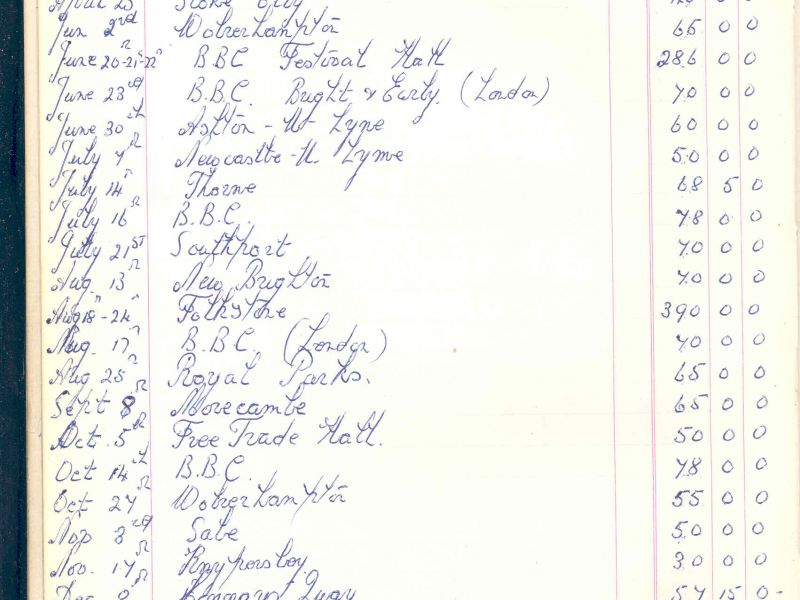 April 25 Stoke City 120 0 0
Jun 2nd Wolverhampton 65 0 0
June 20-21-22 B.B.C Festival Hall 286 0 0
June 23rd B.B.C. Bright & Early. (London) 70 0 0
June 30th Ashton-U-Lyne 60 0 0
July 7th Newcastle-U. Lyme 50 0 0
July 14th Thorne 68 5 0
July 16th B.B.C. 78 0 0
July 21st Southport 70 0 0
Aug. 13th New Brighton 70 0 0
Aug 18th-24th Folkstone 390 0 0
Aug. 17th B.B.C. (London) 70 0 0
Aug 25th Royal Parks. 65 0 0
Sept 8th Morecambe 65 0 0
Oct. 5th Free Trade Hall. 50 0 0
Oct 14th B.B.C. 78 0 0
Oct 27th Wolverhampton 55 0 0
Nov 3rd Sale 50 0 0
Nov. 17th Knypersley 30 0 0
Dec 9th Quay 57 15 0-